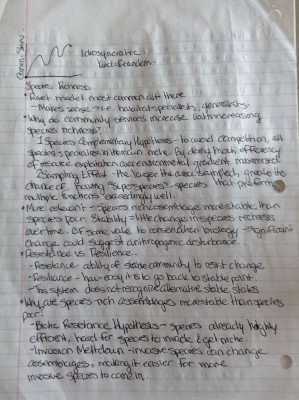 Idiosyncratic
kind of random
Species Richness
• Rivet model most common out there
- Makes sense → i.e. habitat specialists, generalists.
• Why do community services increase with increasing
species richness?
1 Species Complementary Hypothesis - to avoid competition, all
species specialize in their own niche. By doing that, efficiency
of resource exploitation over environmental gradient maximized
2 Sampling Effect - the larger the area sampled, greater the
chance of having "super species" - species that preform
multiple functions exceedingly well
• More relevant - Species rich assemblages more stable than
species poor. Stability = little change in species richness
over time. Of some value to conservation biology → significant
change could suggest anthropogenic disturbance.
• Resistance vs. Resilience
- Resistance - ability of stable community to resist change
- Resilience - how easy it is to go back to stable point
- This system does not recognize alternative stable states
• Why are species-rich assemblages more stable than species
poor?
- Biotic Resistance Hypothesis - species already highly
efficient, hard for species to invade & get niche
- Invasion Meltdown - invasive species can change
assemblages, making it easier for more
invasive species to come in